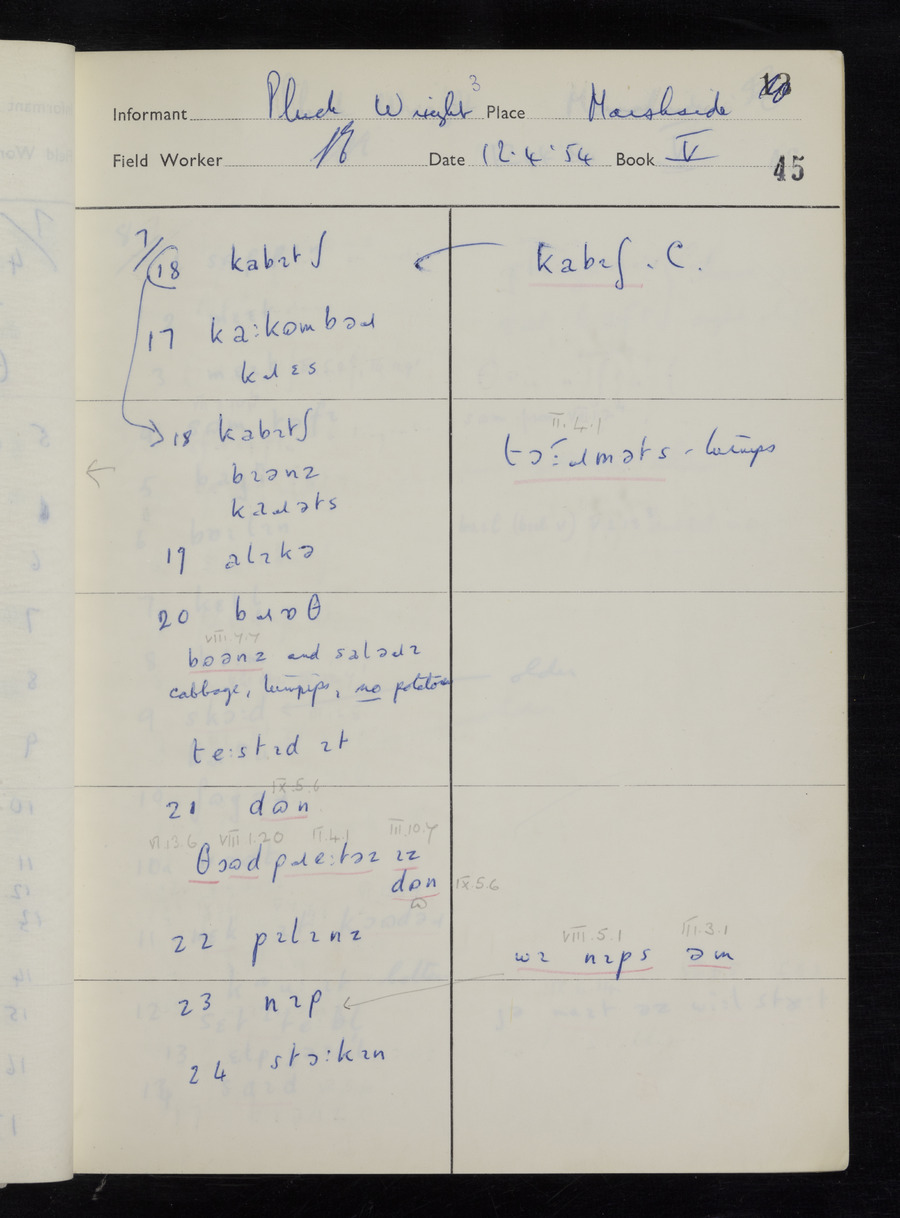 13
Informant Pluck Wright³ Place Marshside
Field Worker Date 12.4.54 Book IV
45
7/18 kabɪtʃ
kabɪʃ . C.
17 ka:kəmbəɹ
kɹɛs
18 kabɪtʃ
II.4.1
bɪənz
kaɹəts
19 alɪkə
20 bɹɒθ
VIII.7.7
bʊənz and saləɹɪ
cabbage, turnips, no potatoes
te:stɪd ɪt
IX.5.6
21 dɷn
VI.13.6 VIII.1.20 II.4.1 III.10.7
pɹe:təz ɪz
dɒn IX.5.6
ɷ
22 pɪlɪnz
VIII.5.1 III.3.1
wɪ nɪps əm
23 nɪp
24 stɔ:kɪn